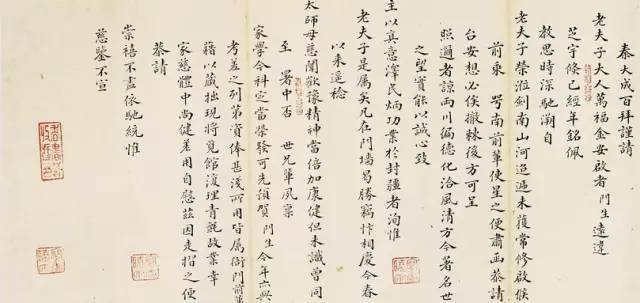 秦大成百拜謹請
老夫子大人萬福金安啟者門生遠違
芝宇條已經年銘佩
教思時深馳溯自
老夫子榮涖劍南山河迢遞未獲常修啟候
前東粤南前輩使星之便肅函恭請
台安想必俟撤棘後方可呈
照邇者諒兩川徧德化洽風清方今著名世
之望實能以誠心致
主以真意澤民炳功業於封疆者洵惟
老夫子是屬矣凡在門墻曷勝竊忭相慶今春
以來遥稔
太師母慈闈歡豫精神當倍加康健但未識曾同
至署中否世兄輩夙禀
家學今科定當榮發可先預賀門生今年六與
考差之列第資俸甚淺所用皆属衙門前輩
藉以藏拙現將覓館復理青氈故業幸
家慈體中尚健差用自慰兹因走摺之便
恭請
崇禧不盡依馳統惟
慈鑒不宣